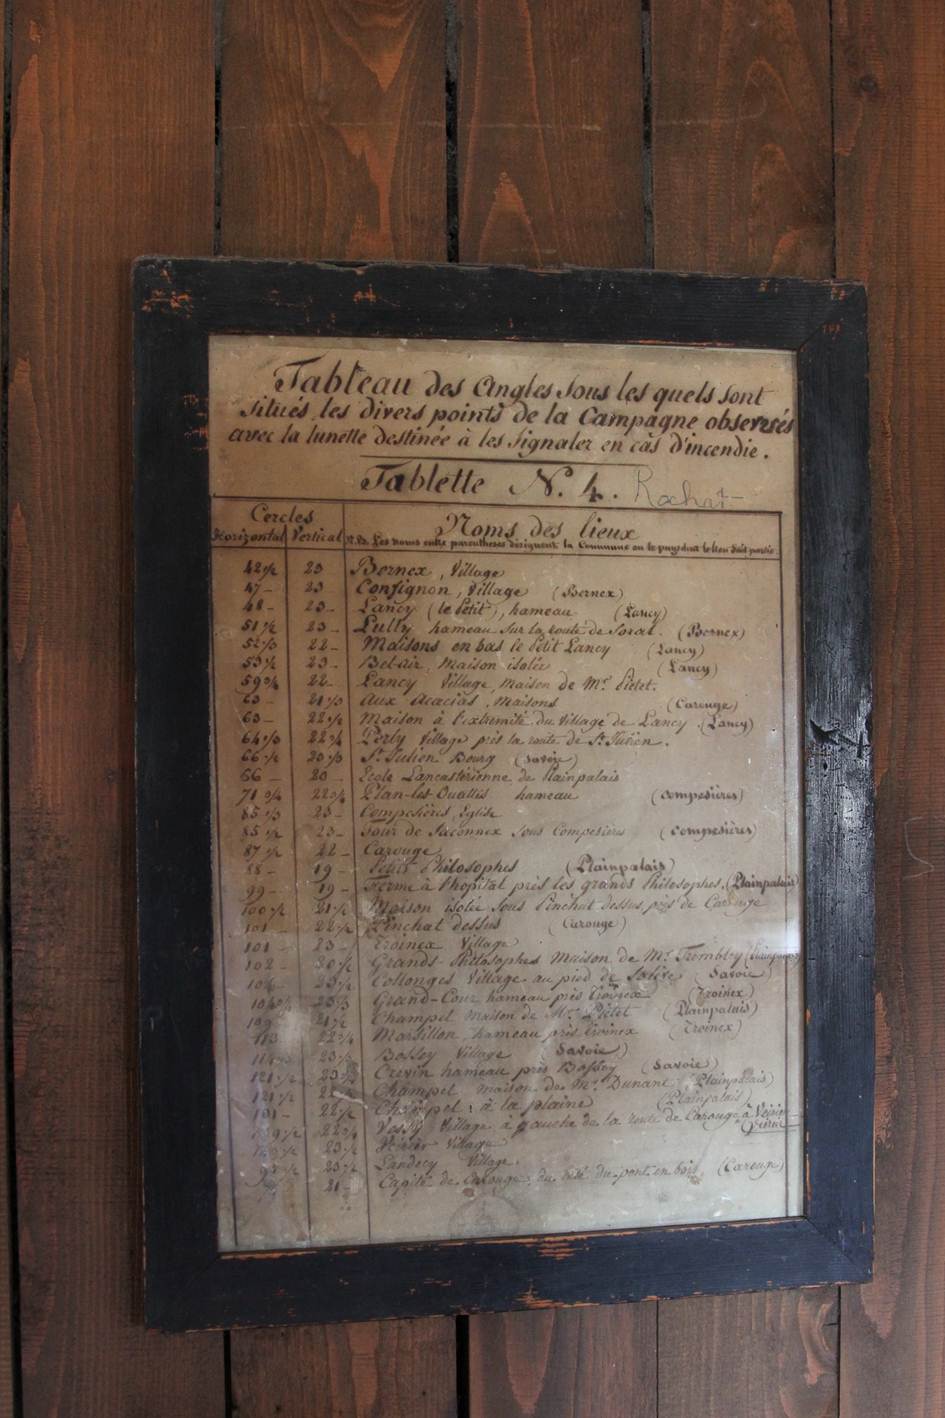 Tableau des Angles sous les quels sont
situés les divers points de la Campagne observés
avec la lunette destinée à les signaler en cas d'incendie.
Tablette N. 4. Rochat
Cercles
Horizontal Vertical
Noms des lieux
N.B. Les noms entre parenthèses désignent la Commune ou le pays dont le lieu fait partie.
42 1/2 23 Bernex, Village
47 - 23 Confignon, Village (Bernex)
48 - 23 - Lancy (le Petit), hameau (Lancy)
51 1/2 23 - Lully hameau sur la route de Soral. (Bernex)
22 - Maisons en bas le Petit Lancy (Lancy)
53 1/2 23 - Bel-air, Maison isolée (Lancy)
59 3/4 22 - Lancy Village, maison de Mr. Pictet.
63 - Aux Acacias, Maisons (Carouge)
63 - Maison à l'extrémité du Village de Lancy (Lancy)
Perly Village près la route de St. Julien.
St. Julien Bourg (Savoie)
20 - Ecole Lancastérienne de Plainpalais
Plan-les-Ouattes hameau (Compesières)
23 - Compesières, Eglise
23 - Tour de Saconnex sous Compesières (Compesières)
22 - Carouge
88 - 19 - Petits Philosophes (Plainpalais)
99 - 19 - Ferme à l'hopital près les grands Philosophes. (Plainpalais)
Maison isolée sous Pinchat dessus près de Carouge
101 - Pinchat dessus (Carouge)
101 - 23 - Troinex Village
102 - Grands Philosophes Maison de Mr. Trembley (Plainpalais)
Collonges Village au pied de Salève (Savoie)
Grand-Cour hameau près Troinex (Troinex)
Champel maison de Mr. Pictet (Plainpalais)
Marsillon, hameau près Troinex (Troinex)
Bossey Village (Savoie)
Crevin hameau près Bossey (Savoie)
Champel maison de Mr. Dunant (Plainpalais)
Champel: à la plaine (Plainpalais)
Vessy Village à gauche de la route de Carouge à Veirier
Veirier Village
Landecy Village.
de Carouge, du côté du pont en bois (Carouge)